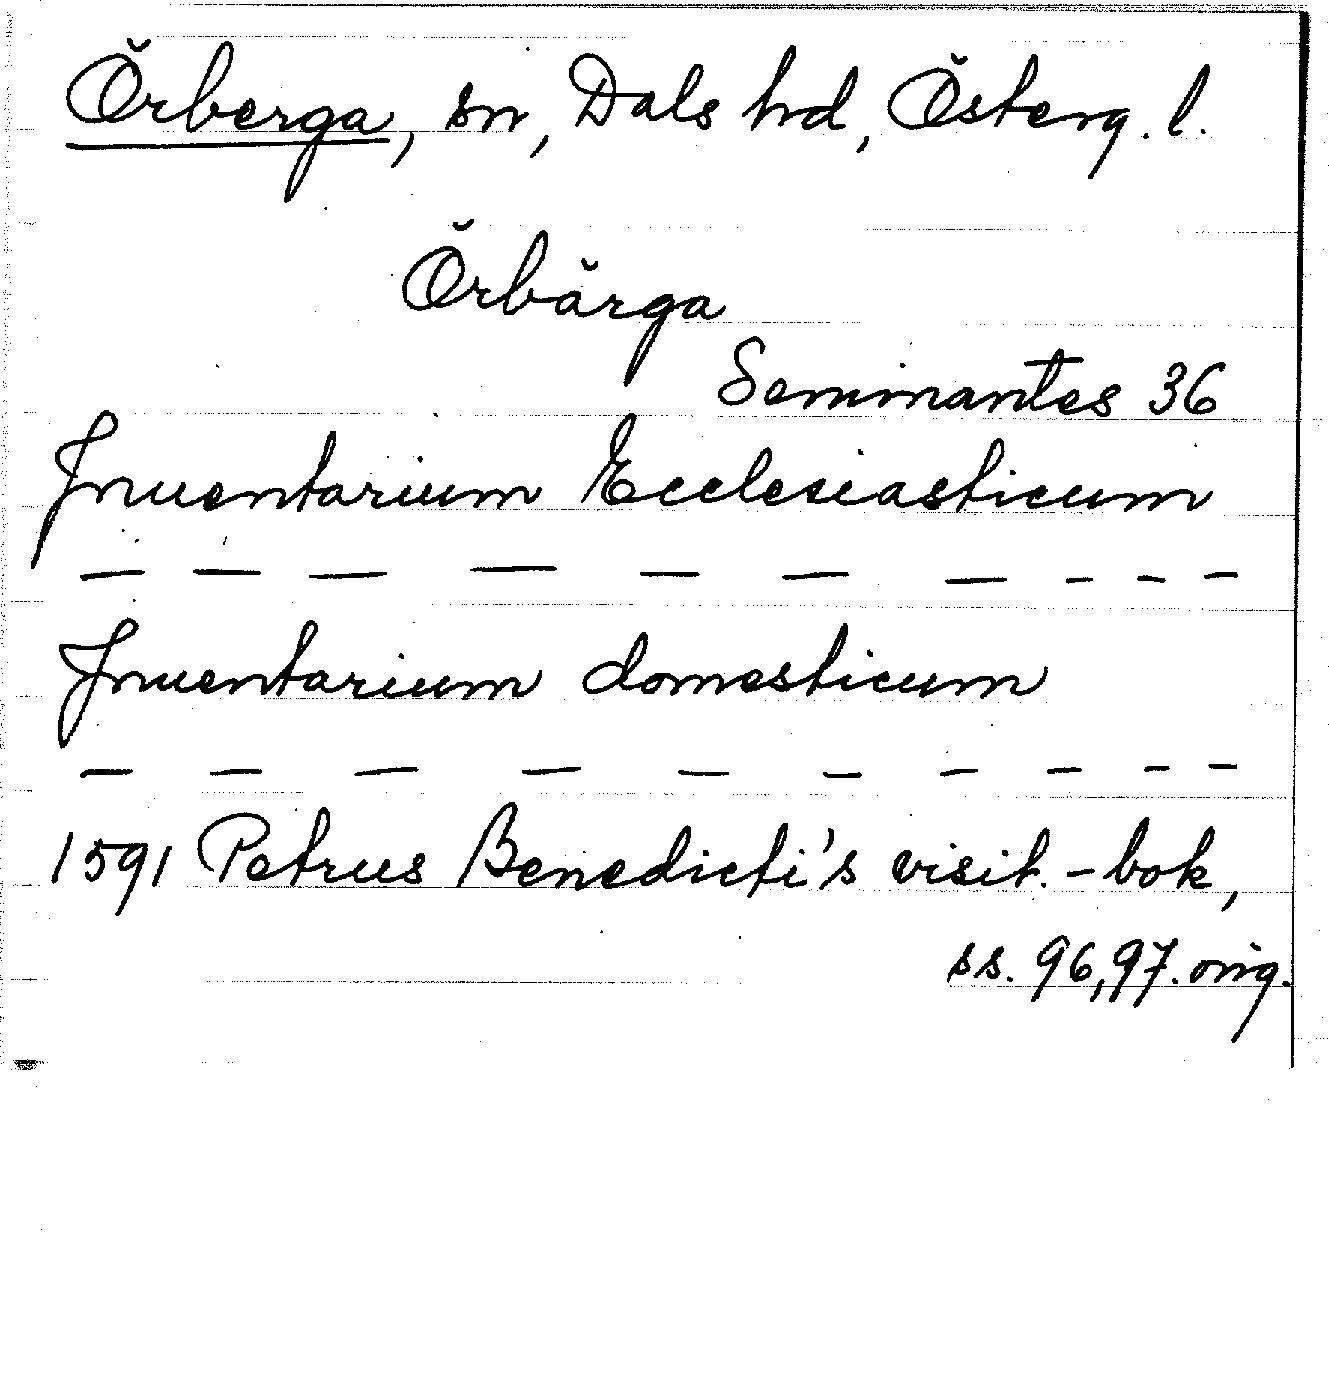 Örberga, sn, Dals hd, Österg. l.
Örbärga
Seminantes 36
Inuentarium Ecclesiasticum
— — — — — — — - - -
Inuentarium domesticum
— — — — — — — - - -
1591 Petrus Benedicti's visit.-bok,
ss. 96,97. orig.